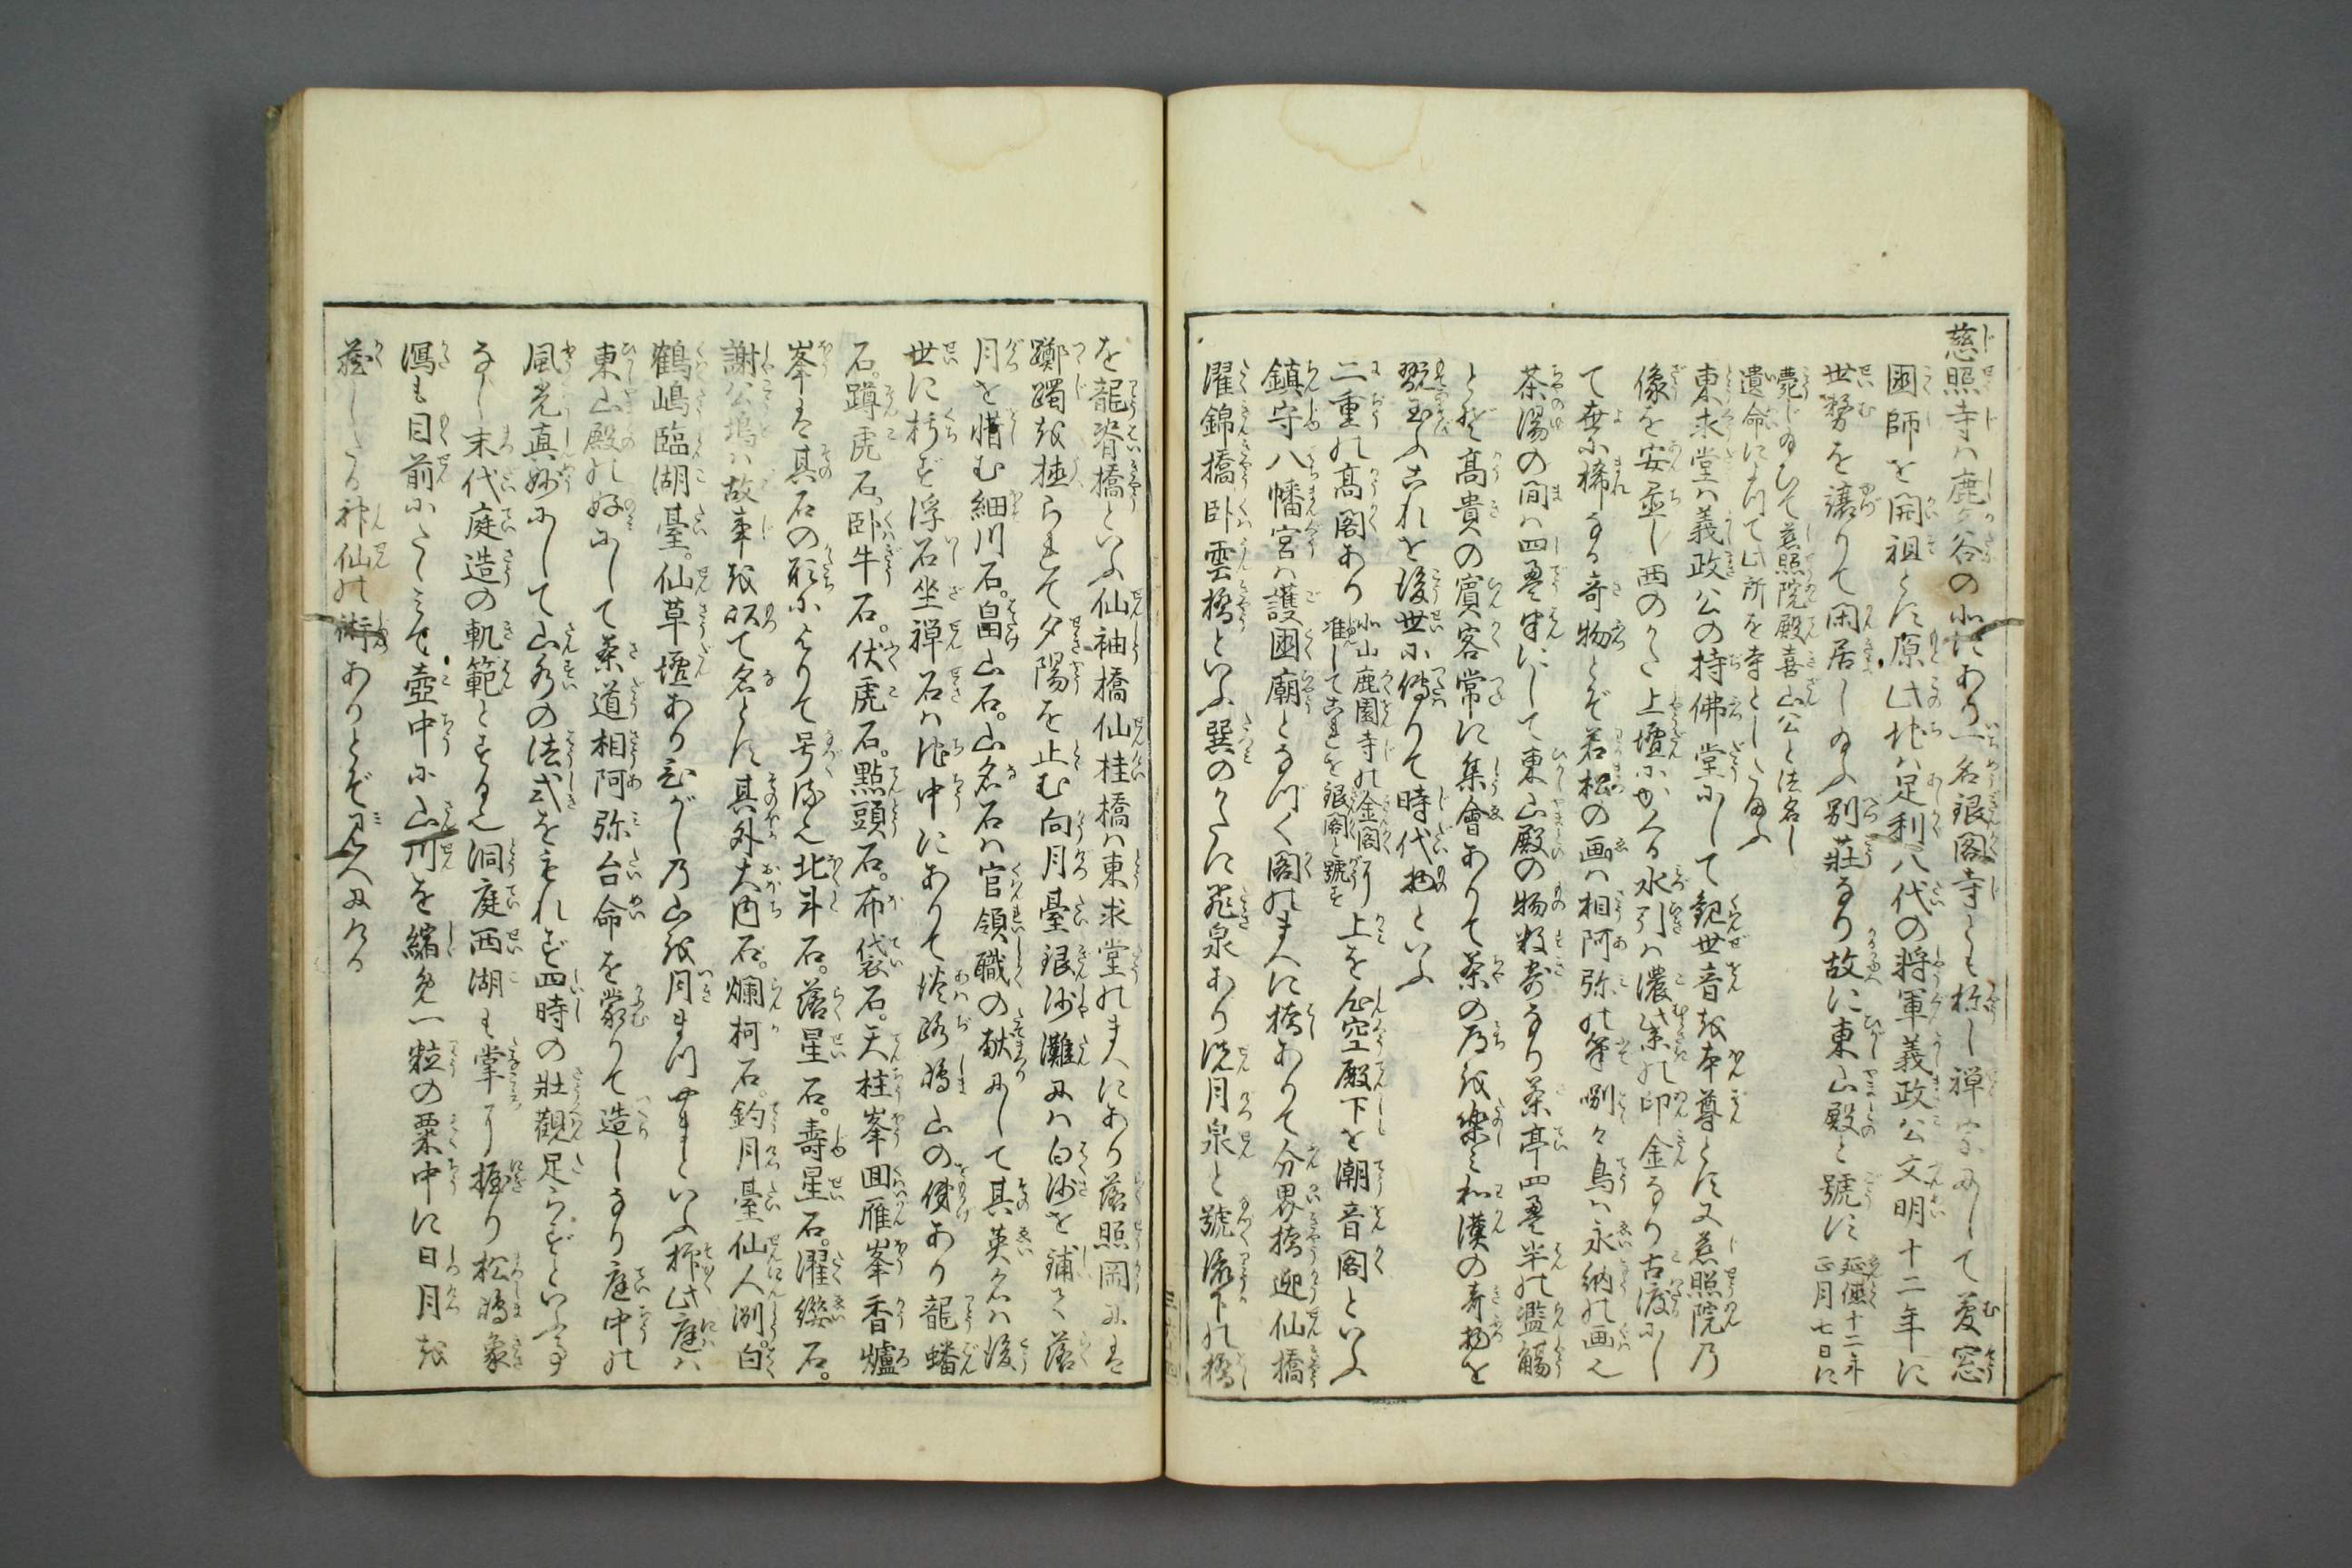 慈照寺は鹿ケ谷の北にあり一名銀閣寺とも称し禅宗にして夢窓
国師を開祖とす原此地は足利八代の将軍義政公文明十二年に
世務を譲りて閑居し給ふ別荘なり故に東山殿と號す延徳十二年正月七日に
薨じ給ひて慈照院殿喜山公と法名し
遺命によつて此所を寺としたまふ
東求堂は義政公の持佛堂にして観世音を本尊とす又慈照院乃
像を安置し西のかた上壇にかくる水引は濃紫の印金なり古渡にし
て世に稀なる奇物とぞ若松の画は相阿弥の筆哵々鳥は永納の画也
茶湯の間は四畳半にして東山殿の物数寄なり茶亭四畳半の濫觴
とぞ高貴の賓客常に集會ありて茶の道を楽み和漢の奇物を
翫玉ふこれを後世に傳りて時代物といふ
二重の高閣あり北山鹿園寺の金閣に准してこれを銀閣と號す上を心空殿下を潮音閣といふ
鎮守八幡宮は護国廟となづく閣のまへに橋ありて分界橋迎仙橋
濯錦橋臥雲橋といふ巽のかたに飛泉あり洗月泉と號流下の橋
を龍脊橋といふ仙袖橋仙桂橋は東求堂のまへにあり落照岡には
躑躅を植られて夕陽を止む向月臺銀沙灘には白沙を鋪て落
月を惜む細川石。畠山石。山名石は官領職の献にして其英名は後
世に朽ず浮石坐禅石は池中にありて淡路嶋山の俤あり龍蟠
石。蹲虎石。臥牛石。伏虎石。點頭石。布袋石。天柱峯回雁峯香爐
峯は其石の形によりて号る也北斗石。落星石。壽星石。濯纓石。
謝公塢は故事を以て名とす其外大内石。爛柯石。釣月臺仙人洲。白
鶴嶋臨湖臺。仙草壇ありひがし乃山を月まつ山といふ抑此庭は
東山殿の好にして茶道相阿弥台命を蒙りて造しなり庭中の
風光真妙にして山水の法式をもれず四時の壮観足らずといふ事
なし末代庭造の軌範とする也洞庭西湖も掌に握り松嶋象
潟も目前にたくみて壺中に山川を縮め一粒の粟中に日月を
蔵したる神仙の術ありとぞ見へにける